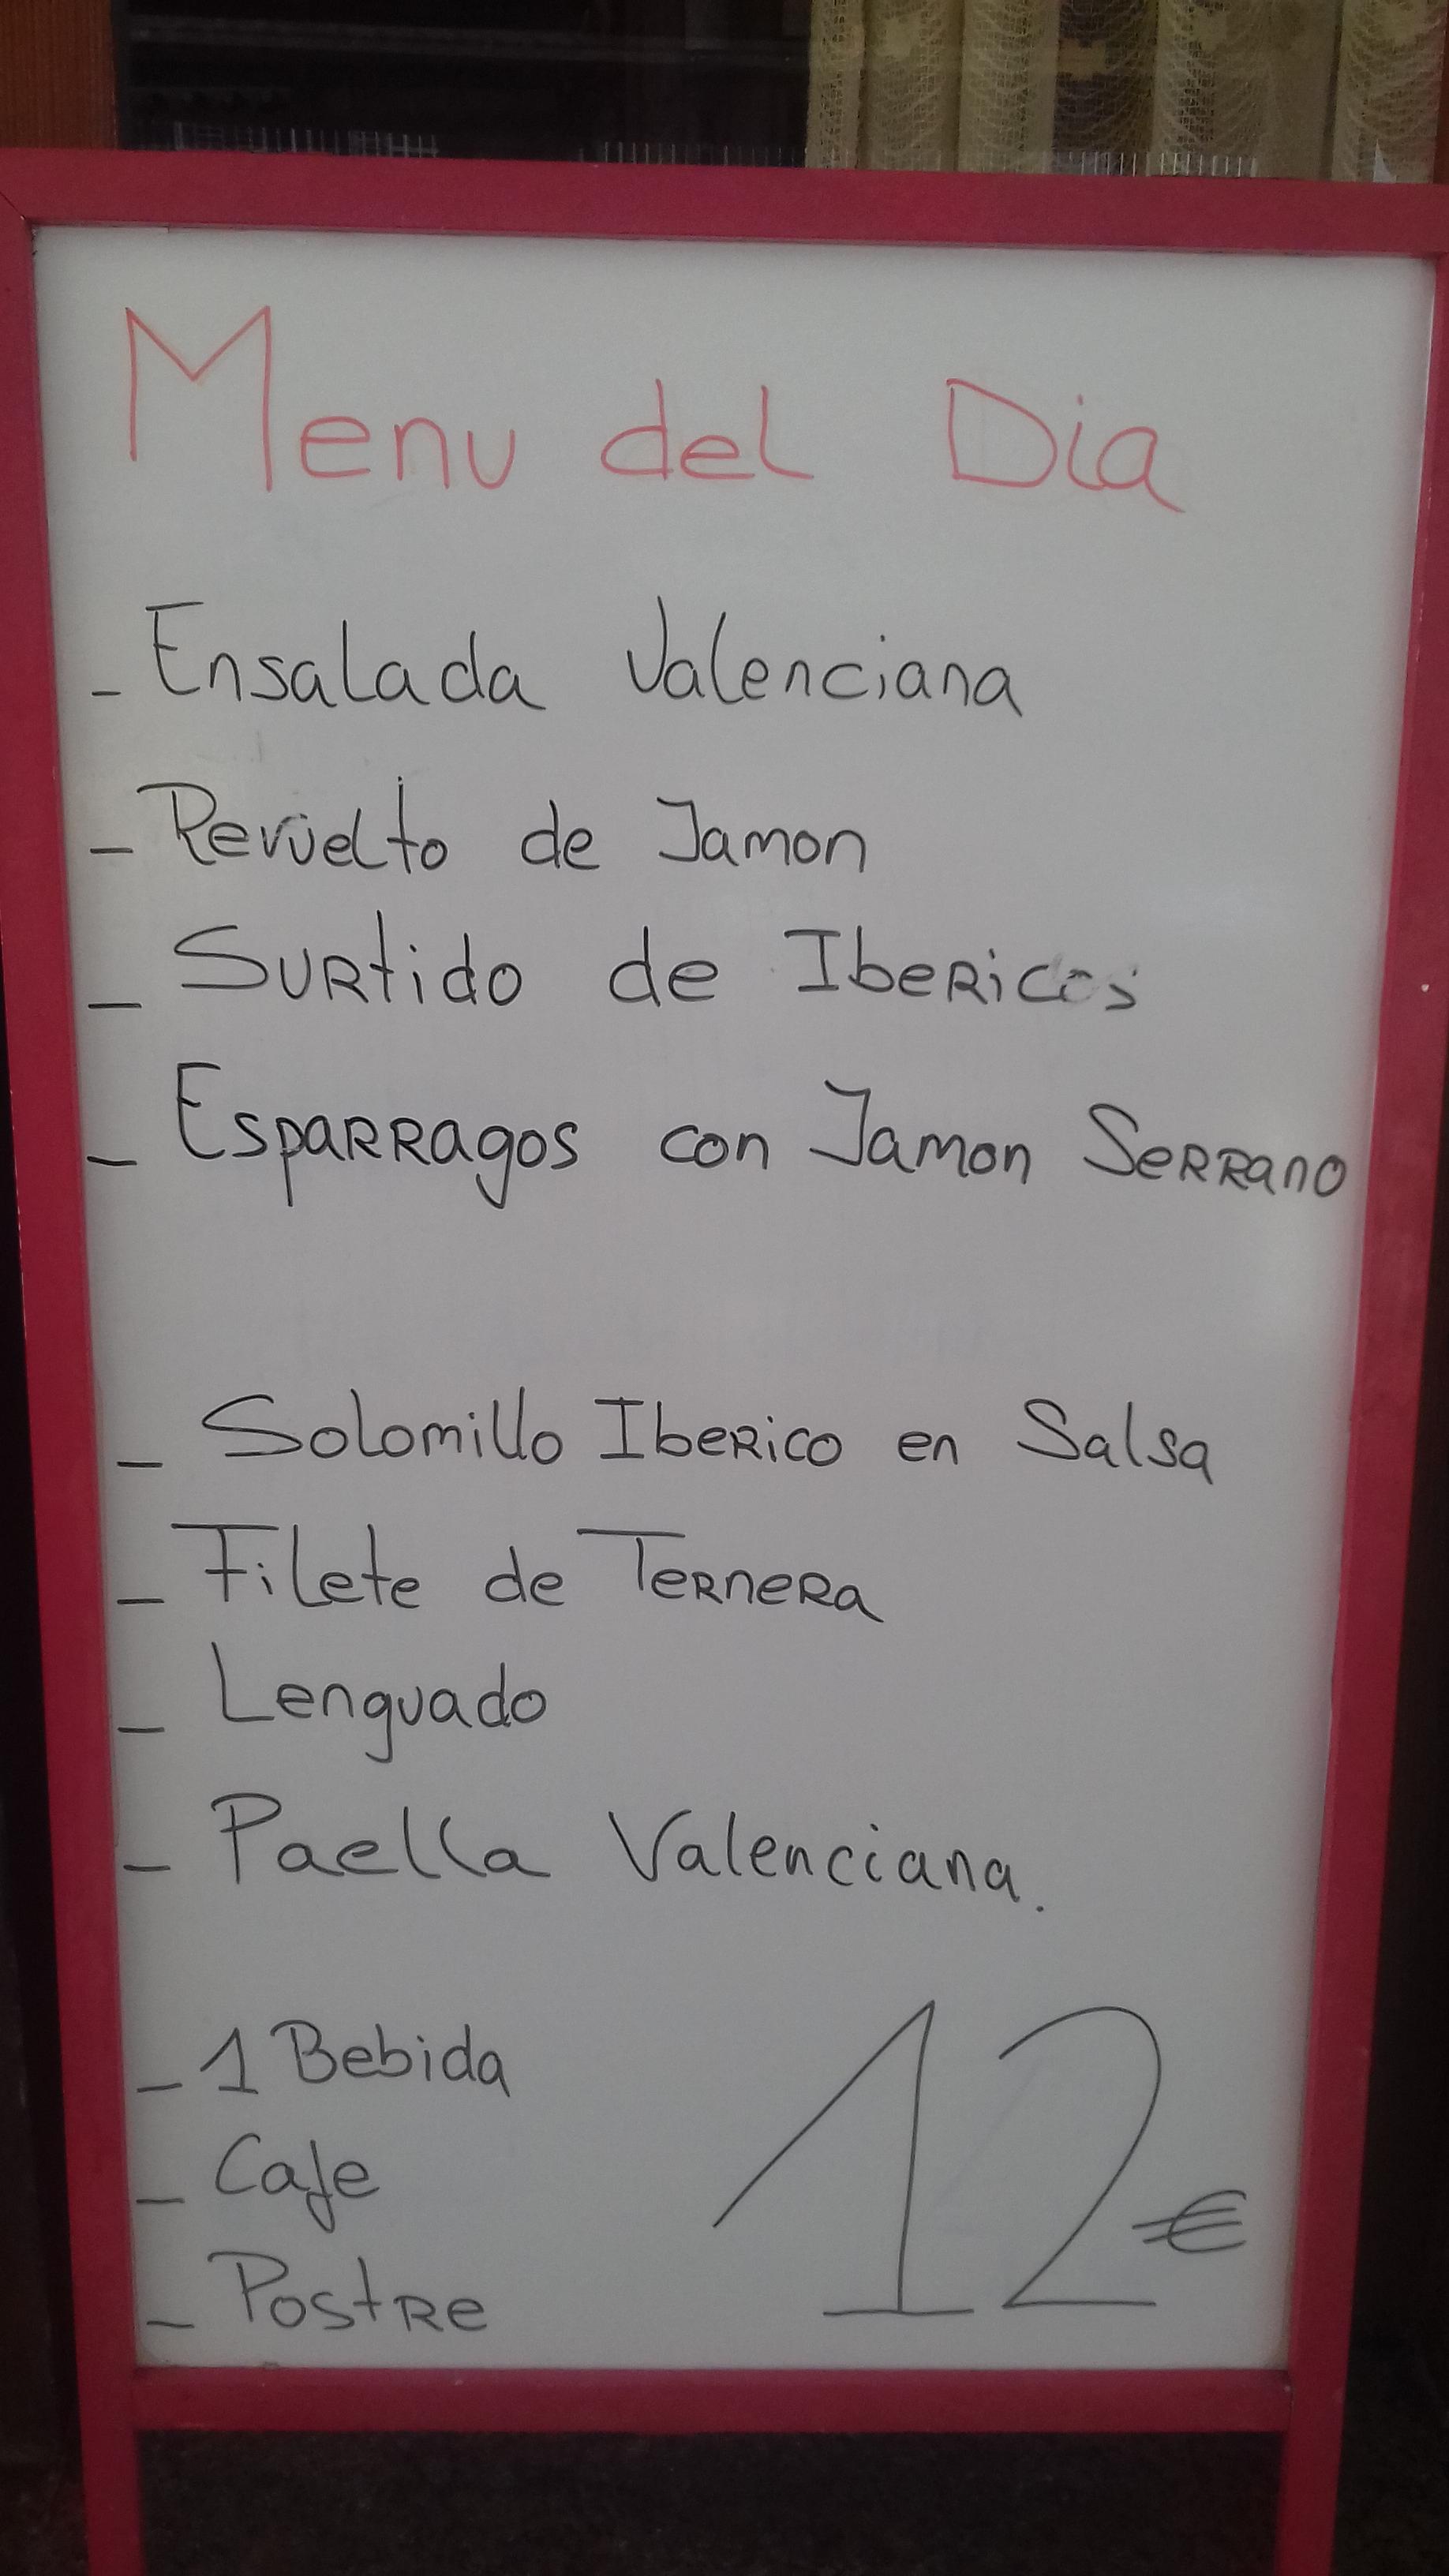 Menu del Dia
- Ensalada Valenciana
- Revuelto de Jamon
- Surtido de Ibericos
- Esparragos con Jamon Serrano
- Solomillo Iberico en Salsa
- Filete de Ternera
- Lenguado
- Paella Valenciana.
- 1 Bebida
- Cafe
- Postre
12€